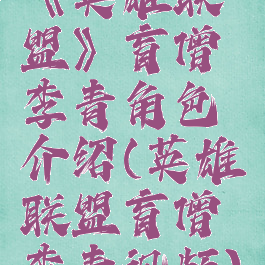 《英雄联
盟》盲僧
李青角色
介绍(英雄
联盟盲僧
李青视频)